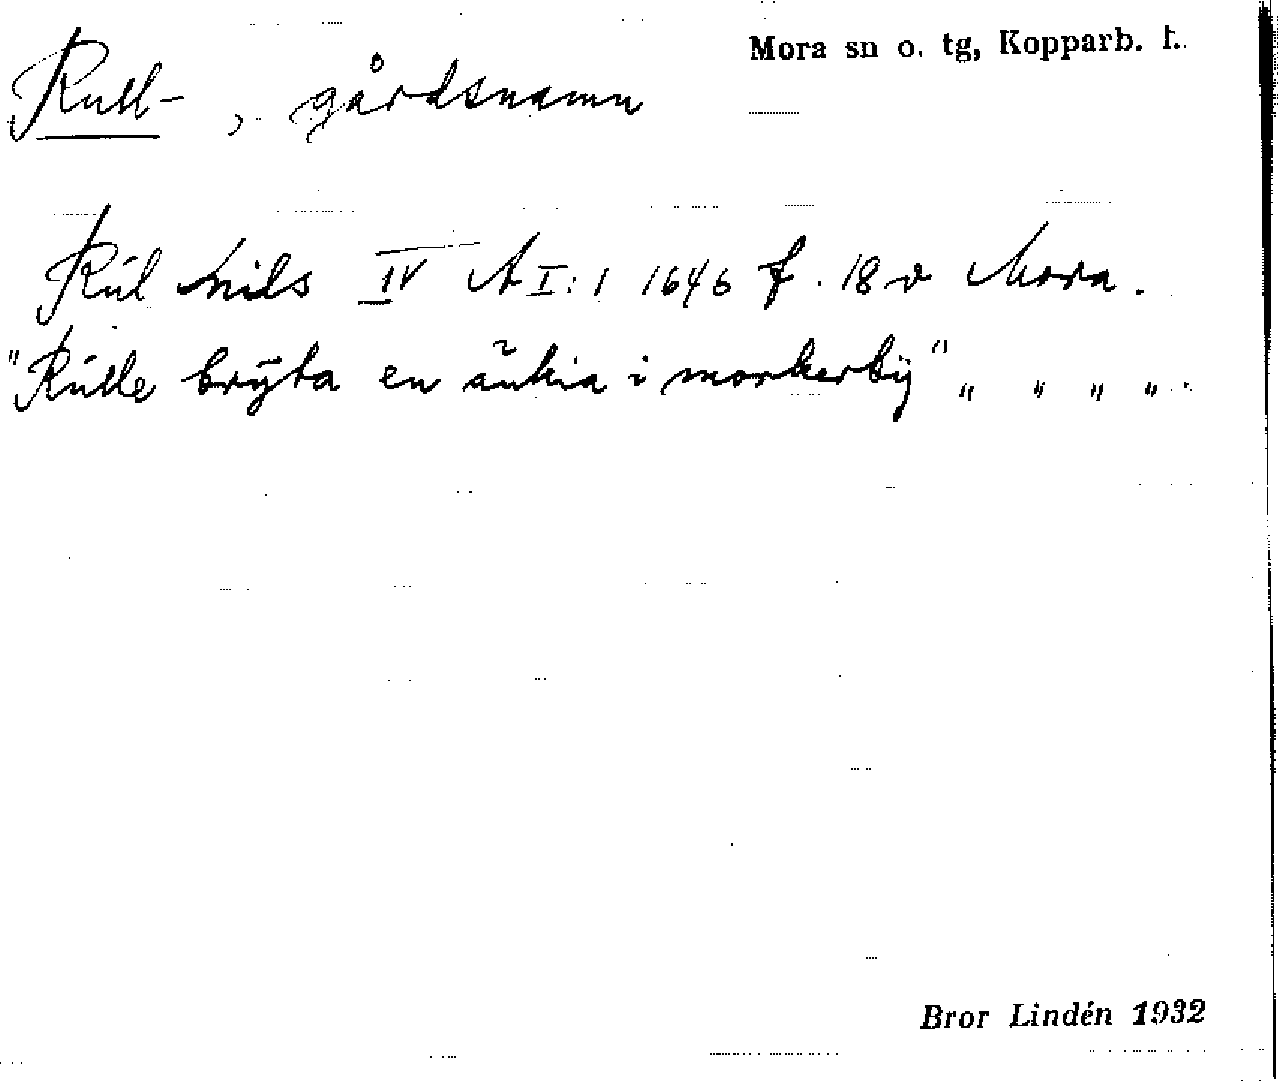 Mora sn o. tg, Kopparb. l.
Rull-, gårdsnamn
Rúl nils IV A I:1 1646 f. 18 v Mora.
"Rúlle brÿta en änkia i morkerbÿ" „ „ „ „.
Bror Lindén 1932